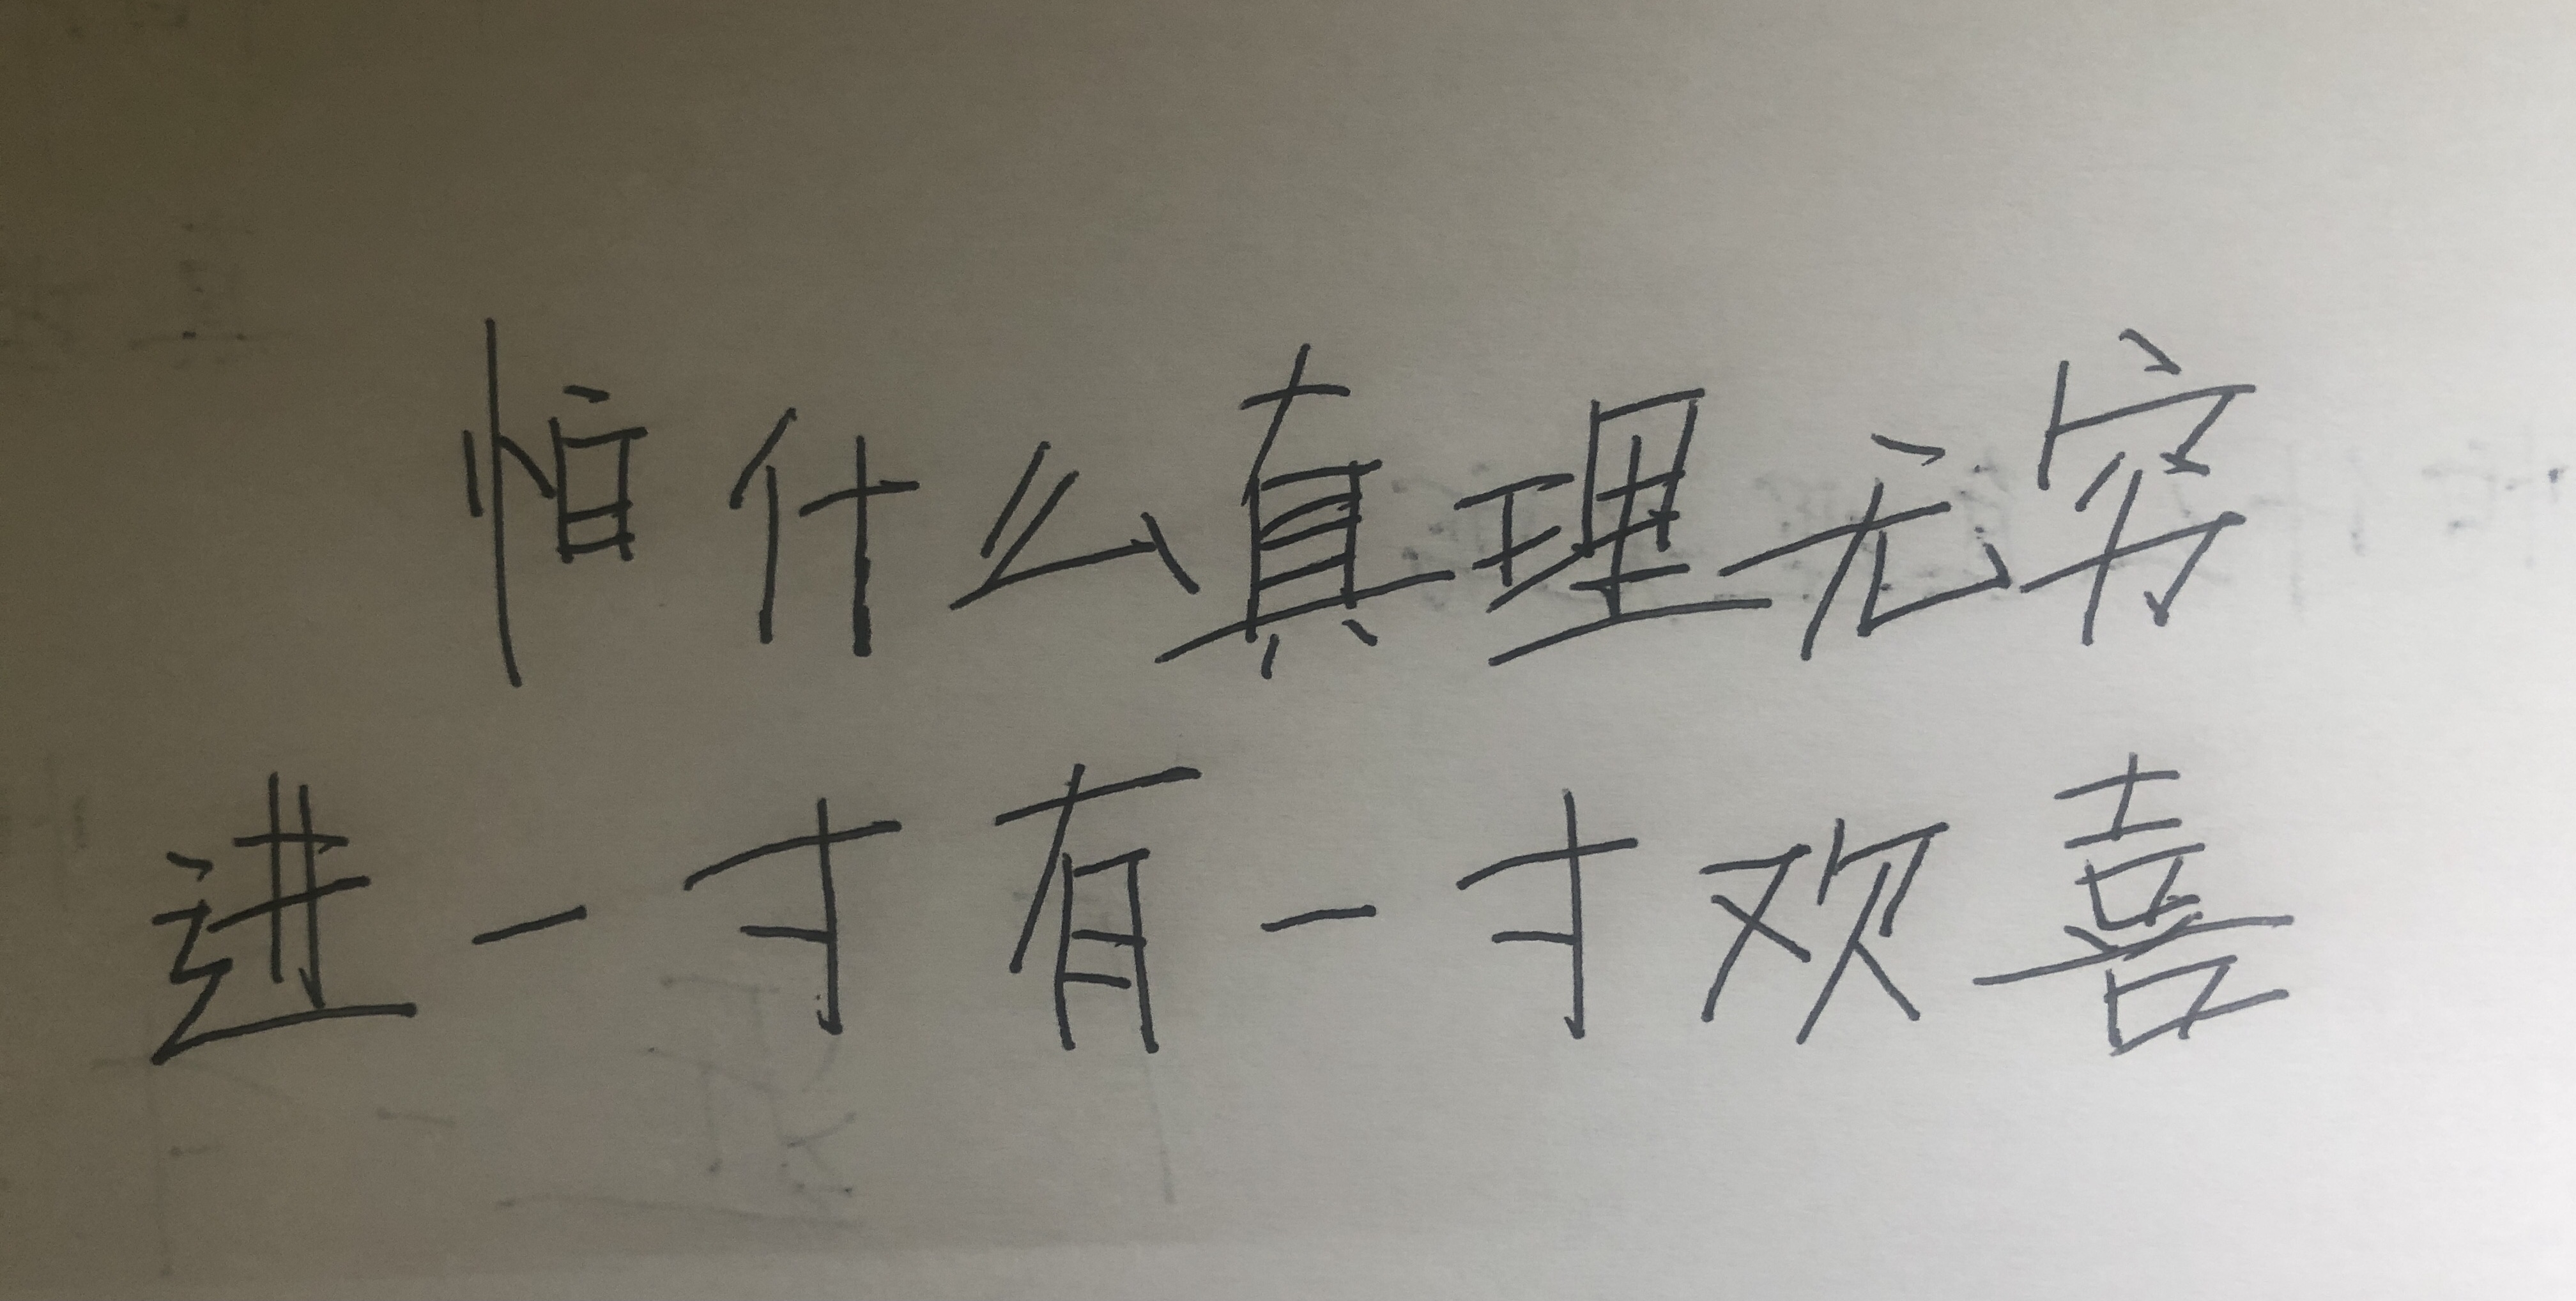 怕什么真理无穷
进一寸有一寸欢喜